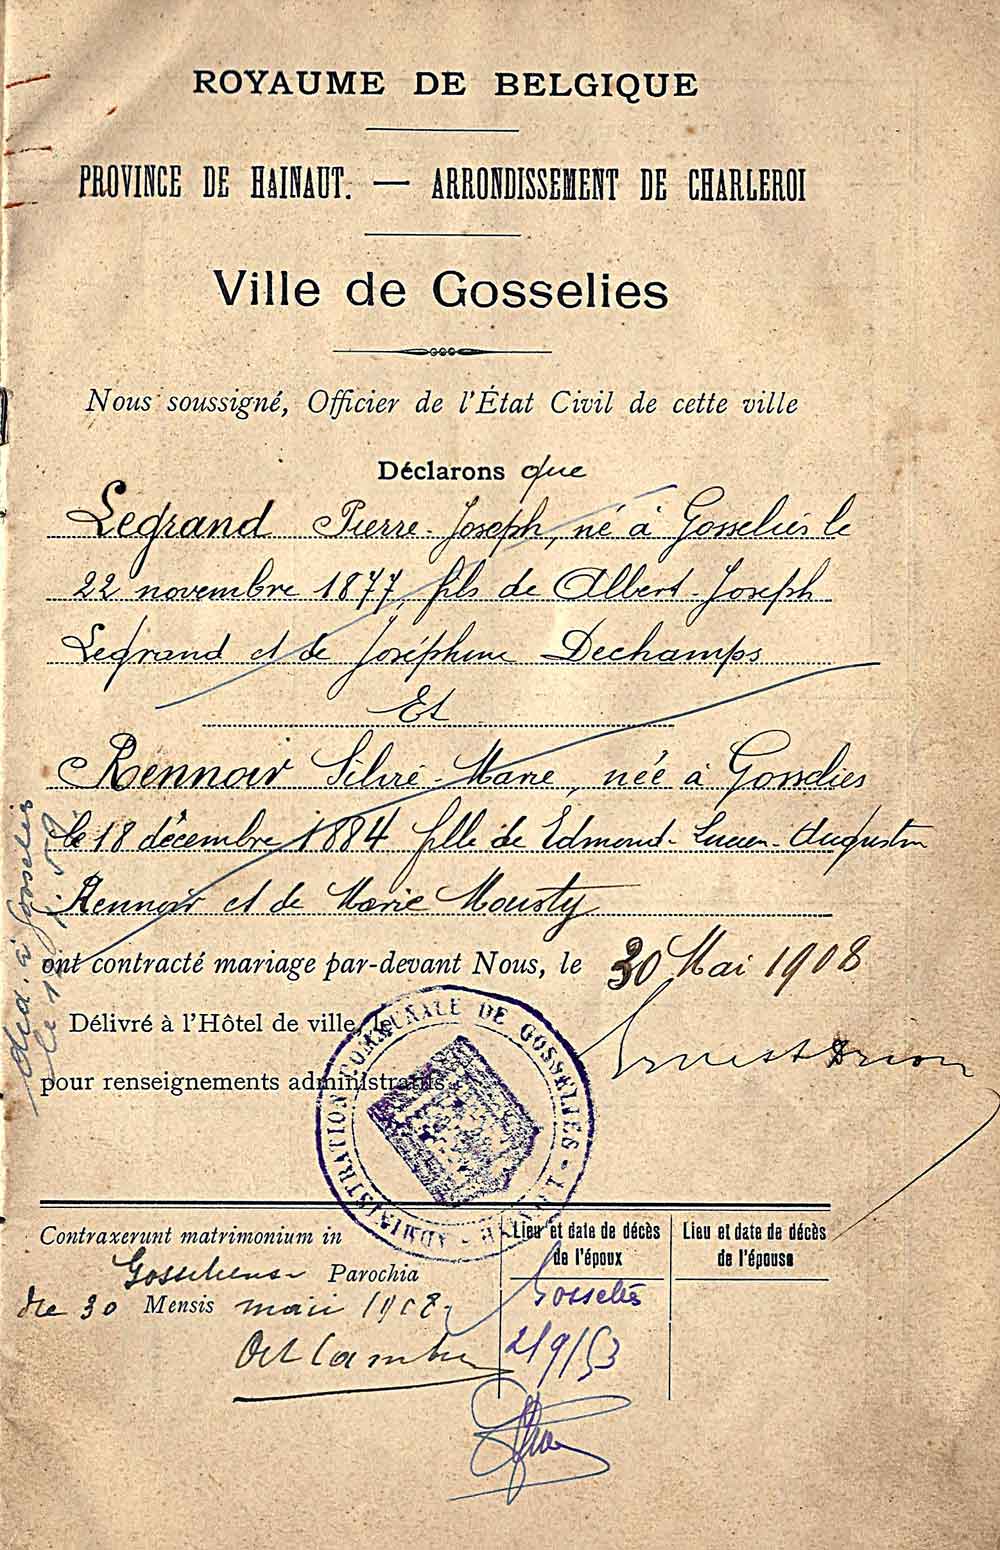 ROYAUME DE BELGIQUE
PROVINCE DE HAINAUT. — ARRONDISSEMENT DE CHARLEROI
Ville de Gosselies
Nous soussigné, Officier de l'État Civil de cette ville
Déclarons que
Legrand Pierre-Joseph, né à Gosselies le
22 novembre 1877, fils de Albert-Joseph
Legrand et de Joséphine Dechamps
Et
Rennoir Silvie-Marie, née à Gosselies
le 18 décembre 1884 fille de Edmond-Lucien-Augustin
Rennoir et de Marie Mousty
ont contracté mariage par-devant Nous, le 30 Mai 1908
Délivré à l'Hôtel de ville, le
pour renseignements administratifs.
ADMINISTRATION COMMUNALE DE GOSSELIES - HAINAUT -
à Gosselies
le
Contraxerunt matrimonium in
Parochia
die 30 Mensis maii 1908
Lieu et date de décès
de l'époux
Gosselies
2/9/53
Lieu et date de décès
de l'épouse